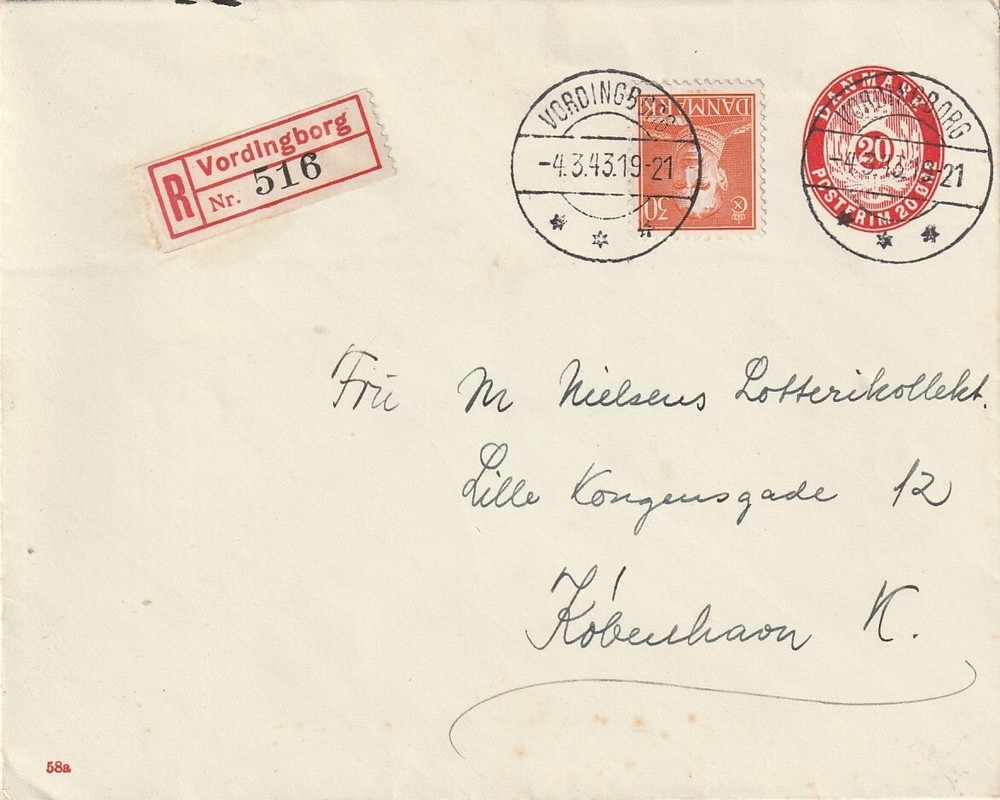 R
Vordingborg
Nr. 516
VORDINGBORG
-4.3.43.19-21
DANMARK
30
DANMARK
20
POSTFRIM. 20 ØRE
VORDINGBORG
-4.3.43.19-21
Fru M Nielsens Lotterikollekt.
Lille Kongensgade 12
København K.
58a